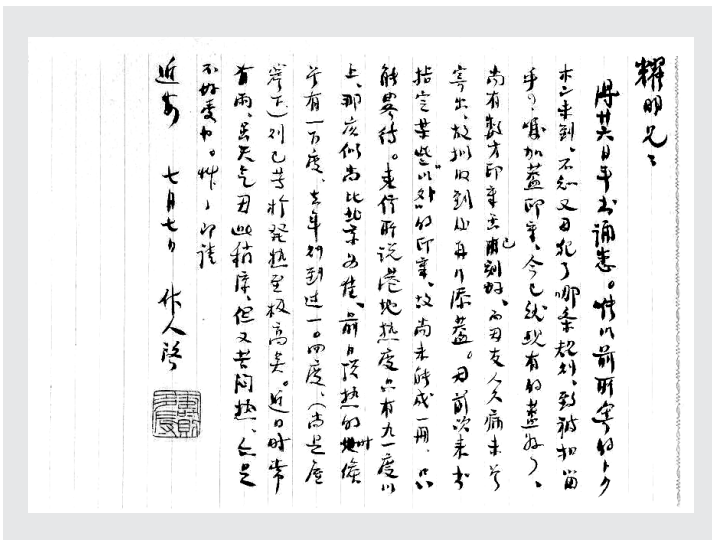 耀明兄：
得廿六日手书诵悉。惟以前所寄的卜夕
木シ未到，不知又因犯了哪条规则，致被扣留
乎。嘱加盖印章，今已就现有的盖好了，
尚有数方印章云已刻好，而因友人久病未曾
寄出，故拟收到后再行添盖。因前次来书
指定某些“以外”的印章，故尚未能成一册，只
能略待。来信所说港地热度只有九一度以
上，那应似尚比北京为佳，前日顶热的时候
曾有一百度，去年则到过一〇四度，（尚是屋
下）则已等于发热至极高矣。近日时常
有雨，虽天气因此稍凉，但又苦闷热，亦是
不好受也。草々即请
近安 七月七日 作人启